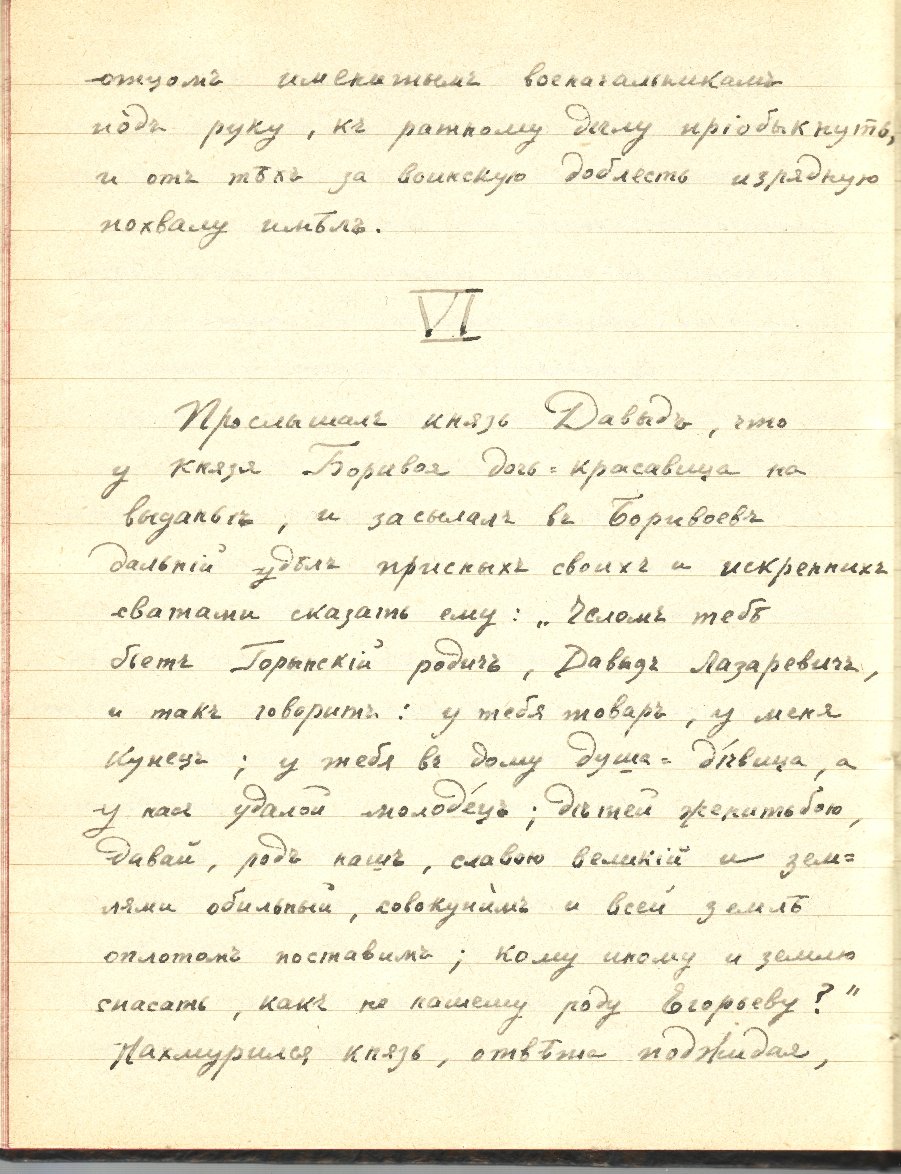 отцомъ именитымъ военачальникамъ
по́дъ руку, къ ратному дѣлу пріобыкнуть,
и отъ тѣхъ за воинскую доблесть изрядную
похвалу имѣлъ.
VI
Прослышалъ князь Давыдъ, что
у князя Боривоя дочь=красавица на
выданьѣ, и засылалъ въ Боривоевъ
дальній удѣлъ присныхъ своихъ и искреннихъ
сватами сказать ему: „Челомъ тебѣ
бьетъ Горынскій родичъ, Давыдъ Лазаревичъ,
и такъ говоритъ: у тебя товаръ, у меня
купецъ; у тебя въ дому душа=дѣвица, а
у насъ удалой молоде́цъ; дѣтей женитьбою,
давай, родъ нашъ, славою великій и зем=
лями обильный, совокупи́мъ и всей землѣ
оплотомъ поставимъ; кому иному и землю
спасать, какъ не нашему роду Егорьеву?"
Нахмурился князь, отвѣта поджидая,